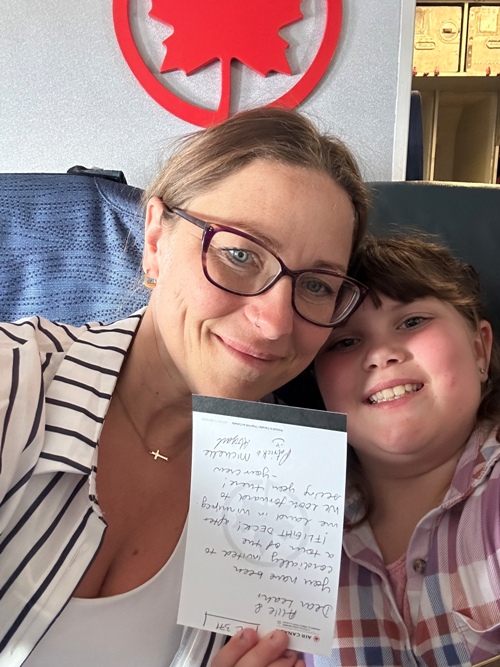 AIR CANADA
371
Allie &
Dear Leahs
You have been
cordially invited to
a tour of the
!FLIGHT DECK! after
we land in Winnipeg
We look forward to
seeing you there!
- your crew
Michelle